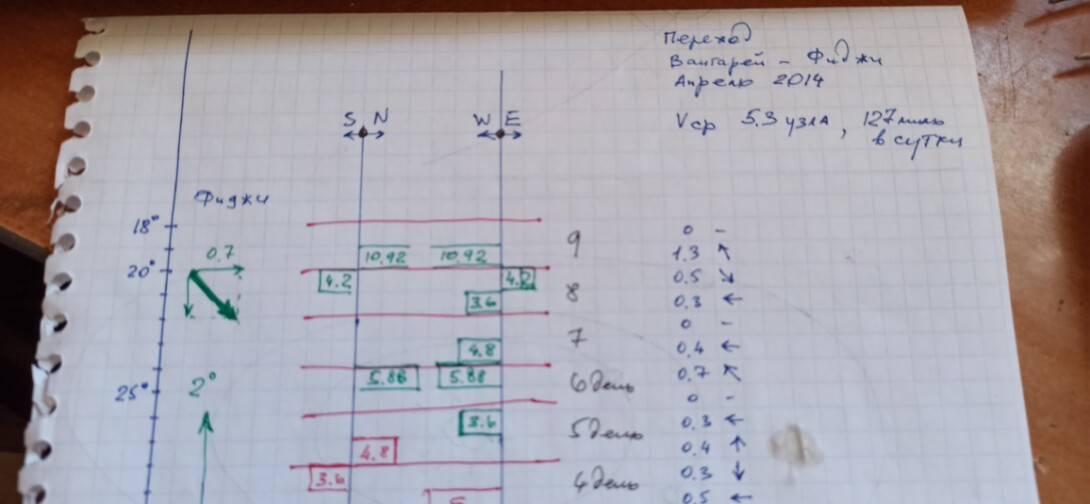 Переход
Вангарей - Фиджи
Апрель 2014
Vср 5.3 узла, 127 миль
в сутки
S N W E
Фиджи
18°
0 -
9
10.92 10.92
1.3 ↖
0.7
20°
4.2 4.2
0.5 ↘
3.6
8
0.3 ←
0 -
7
4.8
0.4 ←
5.88 5.88
0.7 ↖
25°
2°
6 день
0 -
3.6
0.3 ←
5 день
4.8
0.4 ↑
3.6
4 день
0.3 ↓
0.5 ←